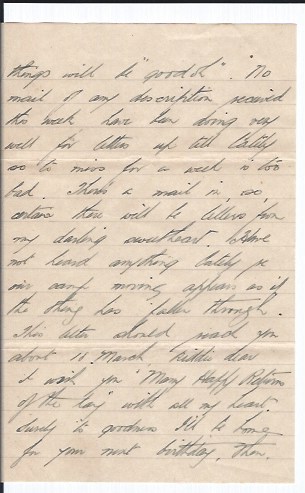 things will be "goodoh". No
mail of any description received
this week have been doing very
well for letters up till lately
so to miss for a week is too
bad. There's a mail in, so,
certain there will be letters from
my darling sweetheart. Have
not heard anything lately re
our camp moving, appears as if
the thing has "fallen through".
This letter should reach you
about 18 March Kiddie dear
I wish you "Many Happy Returns
of the day" with all my heart.
Surely to goodness I'll be home
for your next birthday. Then.